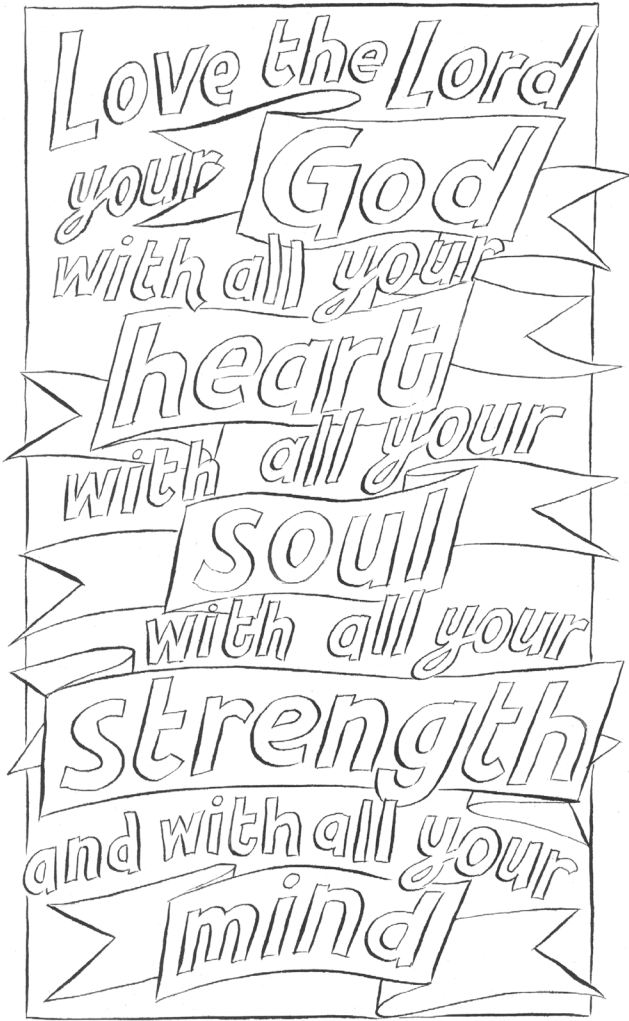 Love the Lord
your God
with all your
heart
with all your
soul
with all your
strength
and with all your
mind